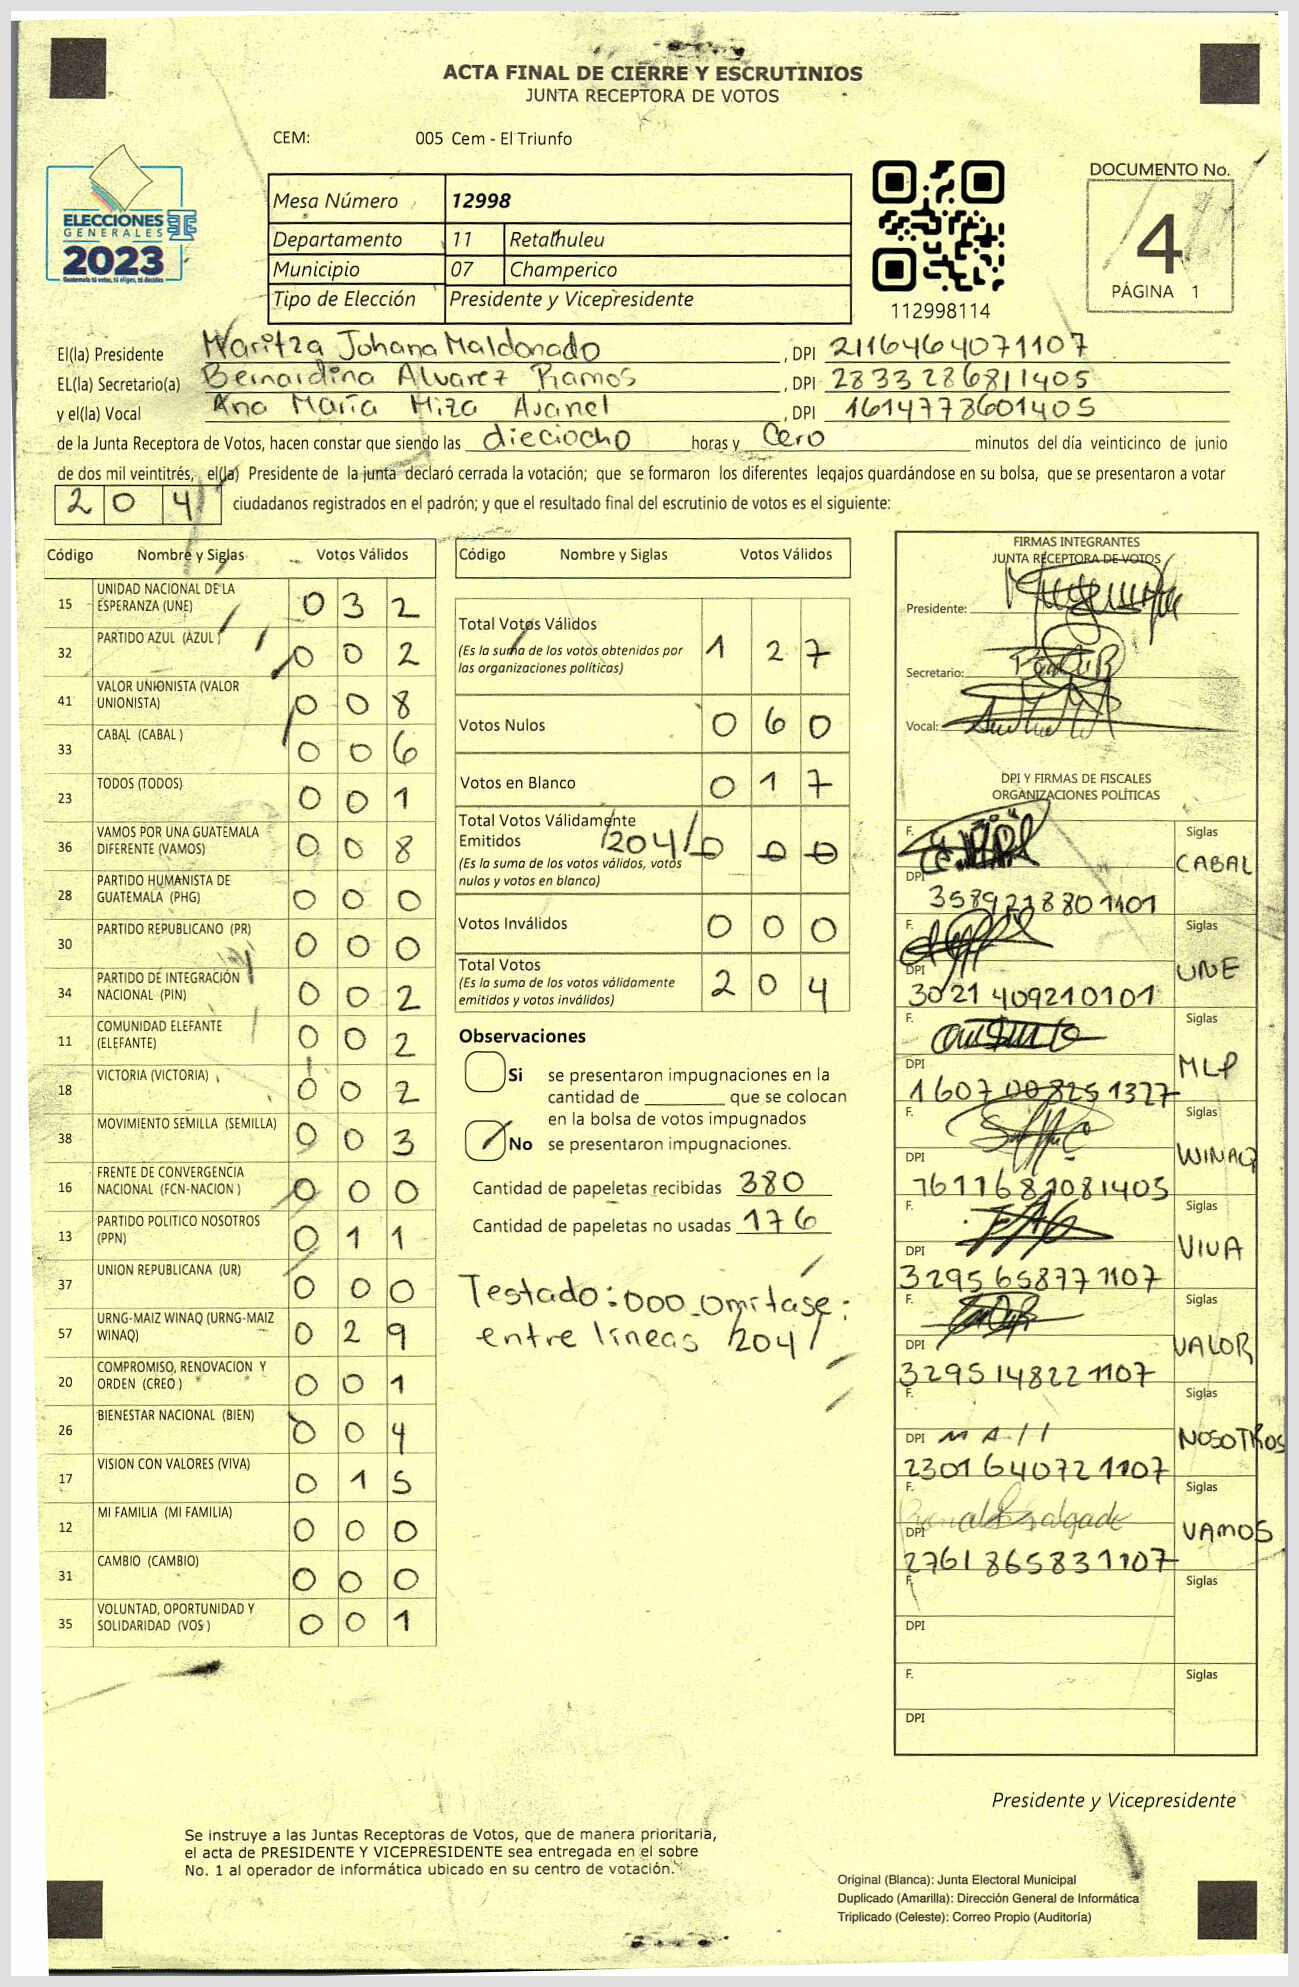 ACTA FINAL DE CIERRE Y ESCRUTINIOS
JUNTA RECEPTORA DE VOTOS
CEM: 005 Cem - El Triunfo
ELECCIONES
GENERALES
2023
Guatemala tú votas, tú eliges, tú decides
Mesa Número 12998
Departamento 11 Retalhuleu
Municipio 07 Champerico
Tipo de Elección Presidente y Vicepresidente
112998114
DOCUMENTO No.
4
PÁGINA 1
El(la) Presidente Maritza Johana Maldonado , DPI 2116464071107
EL(la) Secretario(a) Bernardina Alvarez Ramos , DPI 2833286811405
y el(la) Vocal Ana María Miza Axanel , DPI 1614778601405
de la Junta Receptora de Votos, hacen constar que siendo las dieciocho horas y Cero minutos del día veinticinco de junio
de dos mil veintitrés, el(la) Presidente de la junta declaró cerrada la votación; que se formaron los diferentes legajos guardándose en su bolsa, que se presentaron a votar
204 ciudadanos registrados en el padrón; y que el resultado final del escrutinio de votos es el siguiente:
Código Nombre y Siglas Votos Válidos
15 UNIDAD NACIONAL DE LA ESPERANZA (UNE) 0 3 2
32 PARTIDO AZUL (AZUL ) 0 0 2
41 VALOR UNIONISTA (VALOR UNIONISTA) 0 0 8
33 CABAL (CABAL ) 0 0 6
23 TODOS (TODOS) 0 0 1
36 VAMOS POR UNA GUATEMALA DIFERENTE (VAMOS) 0 0 8
28 PARTIDO HUMANISTA DE GUATEMALA (PHG) 0 0 0
30 PARTIDO REPUBLICANO (PR) 0 0 0
34 PARTIDO DE INTEGRACIÓN NACIONAL (PIN) 0 0 2
11 COMUNIDAD ELEFANTE (ELEFANTE) 0 0 2
18 VICTORIA (VICTORIA) 0 0 2
38 MOVIMIENTO SEMILLA (SEMILLA) 0 0 3
16 FRENTE DE CONVERGENCIA NACIONAL (FCN-NACION ) 0 0 0
13 PARTIDO POLITICO NOSOTROS (PPN) 0 1 1
37 UNION REPUBLICANA (UR) 0 0 0
57 URNG-MAIZ WINAQ (URNG-MAIZ WINAQ) 0 2 9
20 COMPROMISO, RENOVACION Y ORDEN (CREO ) 0 0 1
26 BIENESTAR NACIONAL (BIEN) 0 0 4
17 VISION CON VALORES (VIVA) 0 1 5
12 MI FAMILIA (MI FAMILIA) 0 0 0
31 CAMBIO (CAMBIO) 0 0 0
35 VOLUNTAD, OPORTUNIDAD Y SOLIDARIDAD (VOS ) 0 0 1
Código Nombre y Siglas Votos Válidos
Total Votos Válidos 1 2 7
(Es la suma de los votos obtenidos por
las organizaciones políticas)
Votos Nulos 0 6 0
Votos en Blanco 0 1 7
Total Votos Válidamente
Emitidos /204/ 0 0 0
(Es la suma de los votos válidos, votos
nulos y votos en blanco)
Votos Inválidos 0 0 0
Total Votos 2 0 4
(Es la suma de los votos válidamente
emitidos y votos inválidos)
Observaciones
Si se presentaron impugnaciones en la
cantidad de ________ que se colocan
en la bolsa de votos impugnados
No se presentaron impugnaciones.
Cantidad de papeletas recibidas 380
Cantidad de papeletas no usadas 176
Testado: 000 omitase:
entre lineas /204/
FIRMAS INTEGRANTES
JUNTA RECEPTORA DE VOTOS
Presidente:
Secretario:
Vocal:
DPI Y FIRMAS DE FISCALES
ORGANIZACIONES POLÍTICAS
F. Siglas CABAL
DPI 3589218801101
F. Siglas UNE
DPI 3021409210101
F. Siglas MLP
DPI 1607008251327
F. Siglas WINAQ
DPI 7611681081405
F. Siglas VIVA
DPI 3295658771107
F. Siglas VALOR
DPI 3295148221107
F. Siglas NOSOTROS
DPI 2301640721107
F. Siglas VAMOS
DPI 2761865831107
F. Siglas
DPI
F. Siglas
DPI
Presidente y Vicepresidente
Se instruye a las Juntas Receptoras de Votos, que de manera prioritaria,
el acta de PRESIDENTE Y VICEPRESIDENTE sea entregada en el sobre
No. 1 al operador de informática ubicado en su centro de votación.
Original (Blanca): Junta Electoral Municipal
Duplicado (Amarilla): Dirección General de Informática
Triplicado (Celeste): Correo Propio (Auditoría)